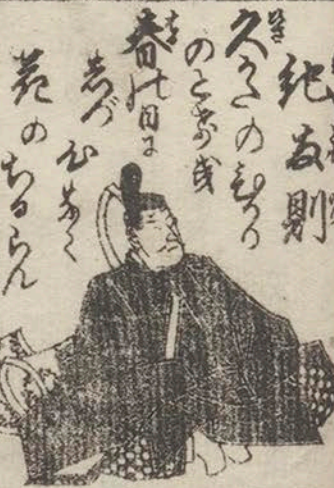 紀友則
久かたのひかり
のとけき
春の日に
しづ心なく
花のちるらん